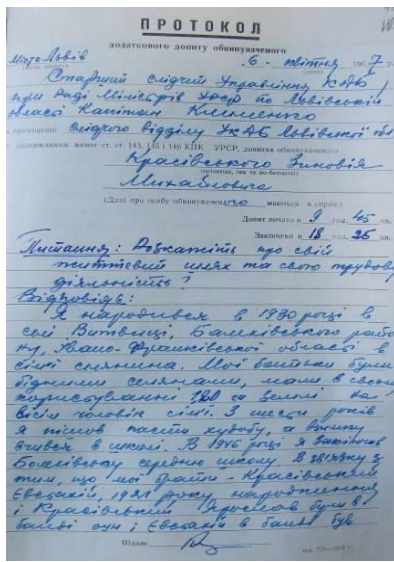 ПРОТОКОЛ
додаткового допиту обвинуваченого
місто Львів 6 квітня 1967 р.
Старший слідчий Управління КДБ
при Раді Міністрів УРСР по Львівській
області капітан Клименко
в приміщенні слідчого відділу УКДБ Львівської обл.
з додержанням вимог ст. ст. 143, 145 і 146 КПК УРСР, допитав обвинуваченого
Красівського Зиновія
(прізвище, ім'я та по батькові)
Михайловича
(Дані про особу обвинуваченого маються в справі)
Допит почато в 9 год. 45 хв.
Закінчено в 18 год. 25 хв.
Питання: Розкажіть про свій
життєвий шлях та свою трудову
діяльність?
Відповідь:
Я народився в 1930 році в
селі Витвиці, Болехівського райо
ну, Івано-Франківської області в
сім'ї селянина. Мої батьки були
бідними селянами, мали в своєму
користуванні га землі на
вісім чоловік сім'ї. З шести років
я пішов пасти худобу, а взимку
вчився в школі. В 1946 році я закінчив
Болехівську середню школу. В зв'язку з
тим, що мої брати - Красівський
Євстахій, 1921 року народження
і Красівський Ярослав були в
банді оун і Євстахій в банді був
Підпис